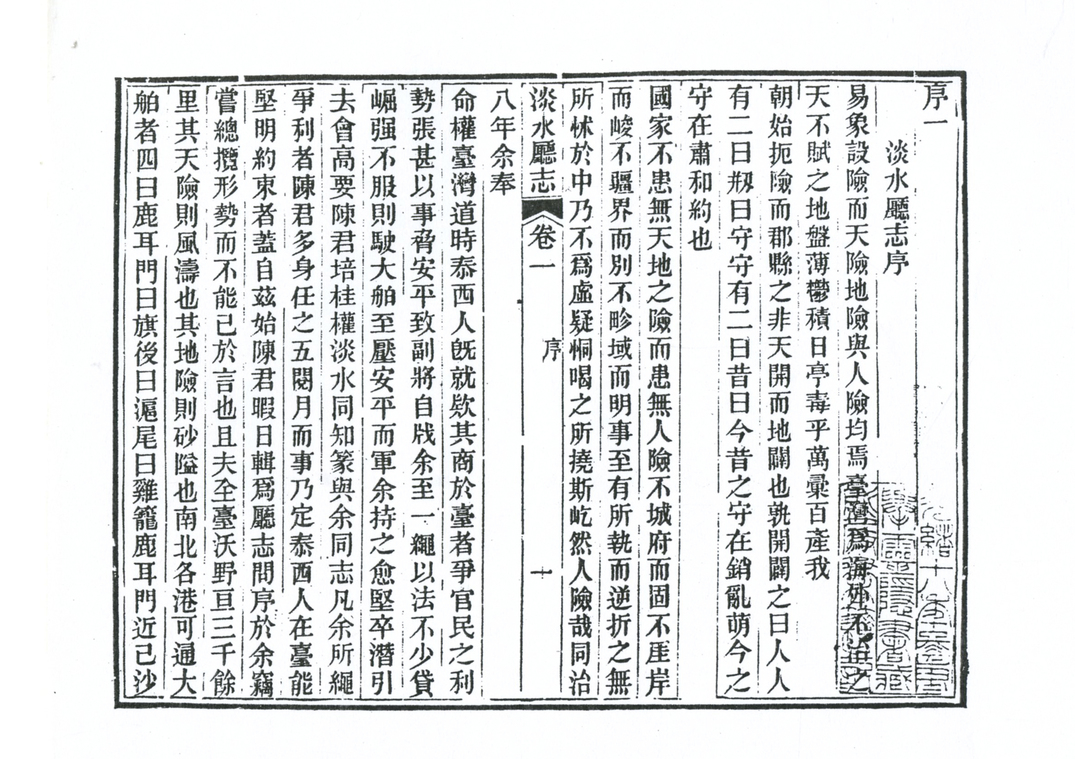 序一
淡水廳志序
易象設險而天險地險與人險均焉臺灣爲海外不之
天不賦之地盤薄鬱積日亭毒乎萬彙百產我
朝始扼險而郡縣之非天開而地闢也孰開闢之曰人人
有二曰剏曰守守有二曰昔曰今昔之守在銷亂萌今之
守在肅和約也
國家不患無天地之險而患無人險不城府而固不厓岸
而峻不疆界而別不畛域而明事至有所執而逆折之無
所怵於中乃不爲虛疑恫喝之所撓斯屹然人險哉同治
淡水廳志 卷一 序 一
八年余奉
命權臺灣道時泰西人旣就欵其商於臺者爭官民之利
勢張甚以事脅安平致副將自戕余至一繩以法不少貸
崛强不服則駛大舶至壓安平而軍余持之愈堅卒潛引
去會高要陳君培桂權淡水同知篆與余同志凡余所繩
爭利者陳君多身任之五閱月而事乃定泰西人在臺能
堅明約束者蓋自茲始陳君暇日輯爲廳志問序於余竊
嘗總攬形勢而不能已於言也且夫全臺沃野亘三千餘
里其天險則風濤也其地險則砂隘也南北各港可通大
舶者四曰鹿耳門曰旗後曰滬尾曰雞籠鹿耳門近已沙